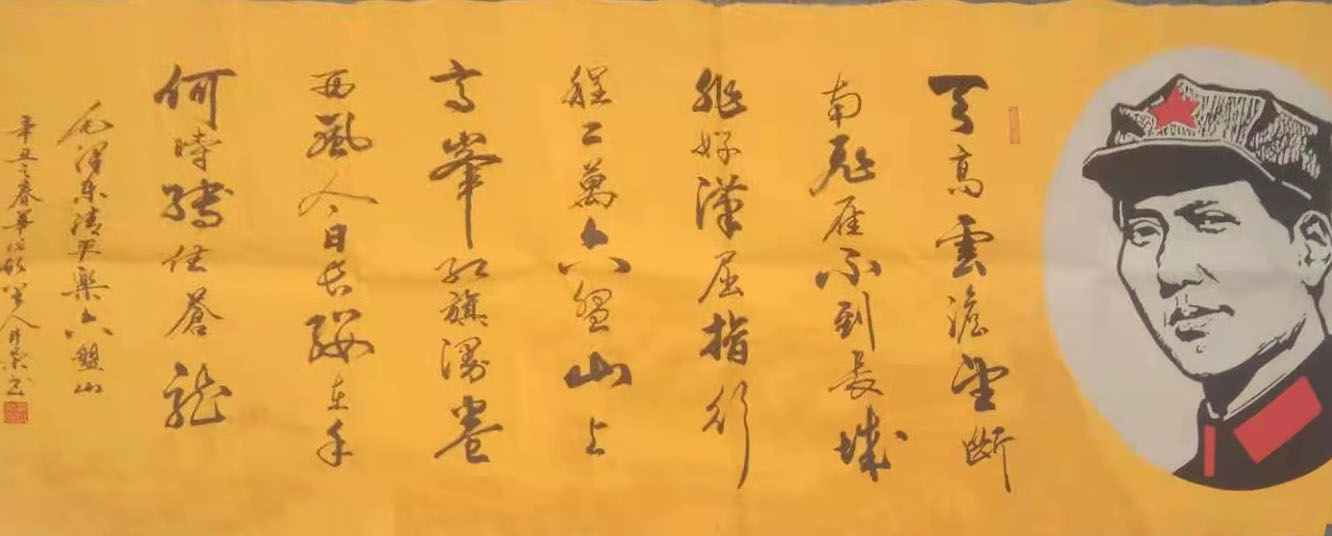 天高雲澹望斷
南飛雁不到長城
非好漢屈指行
程二萬六盤山上
高峯红旗漫卷
西風今日長纓在手
何時縛住蒼龍
毛澤东清平樂六盤山
辛丑之春華